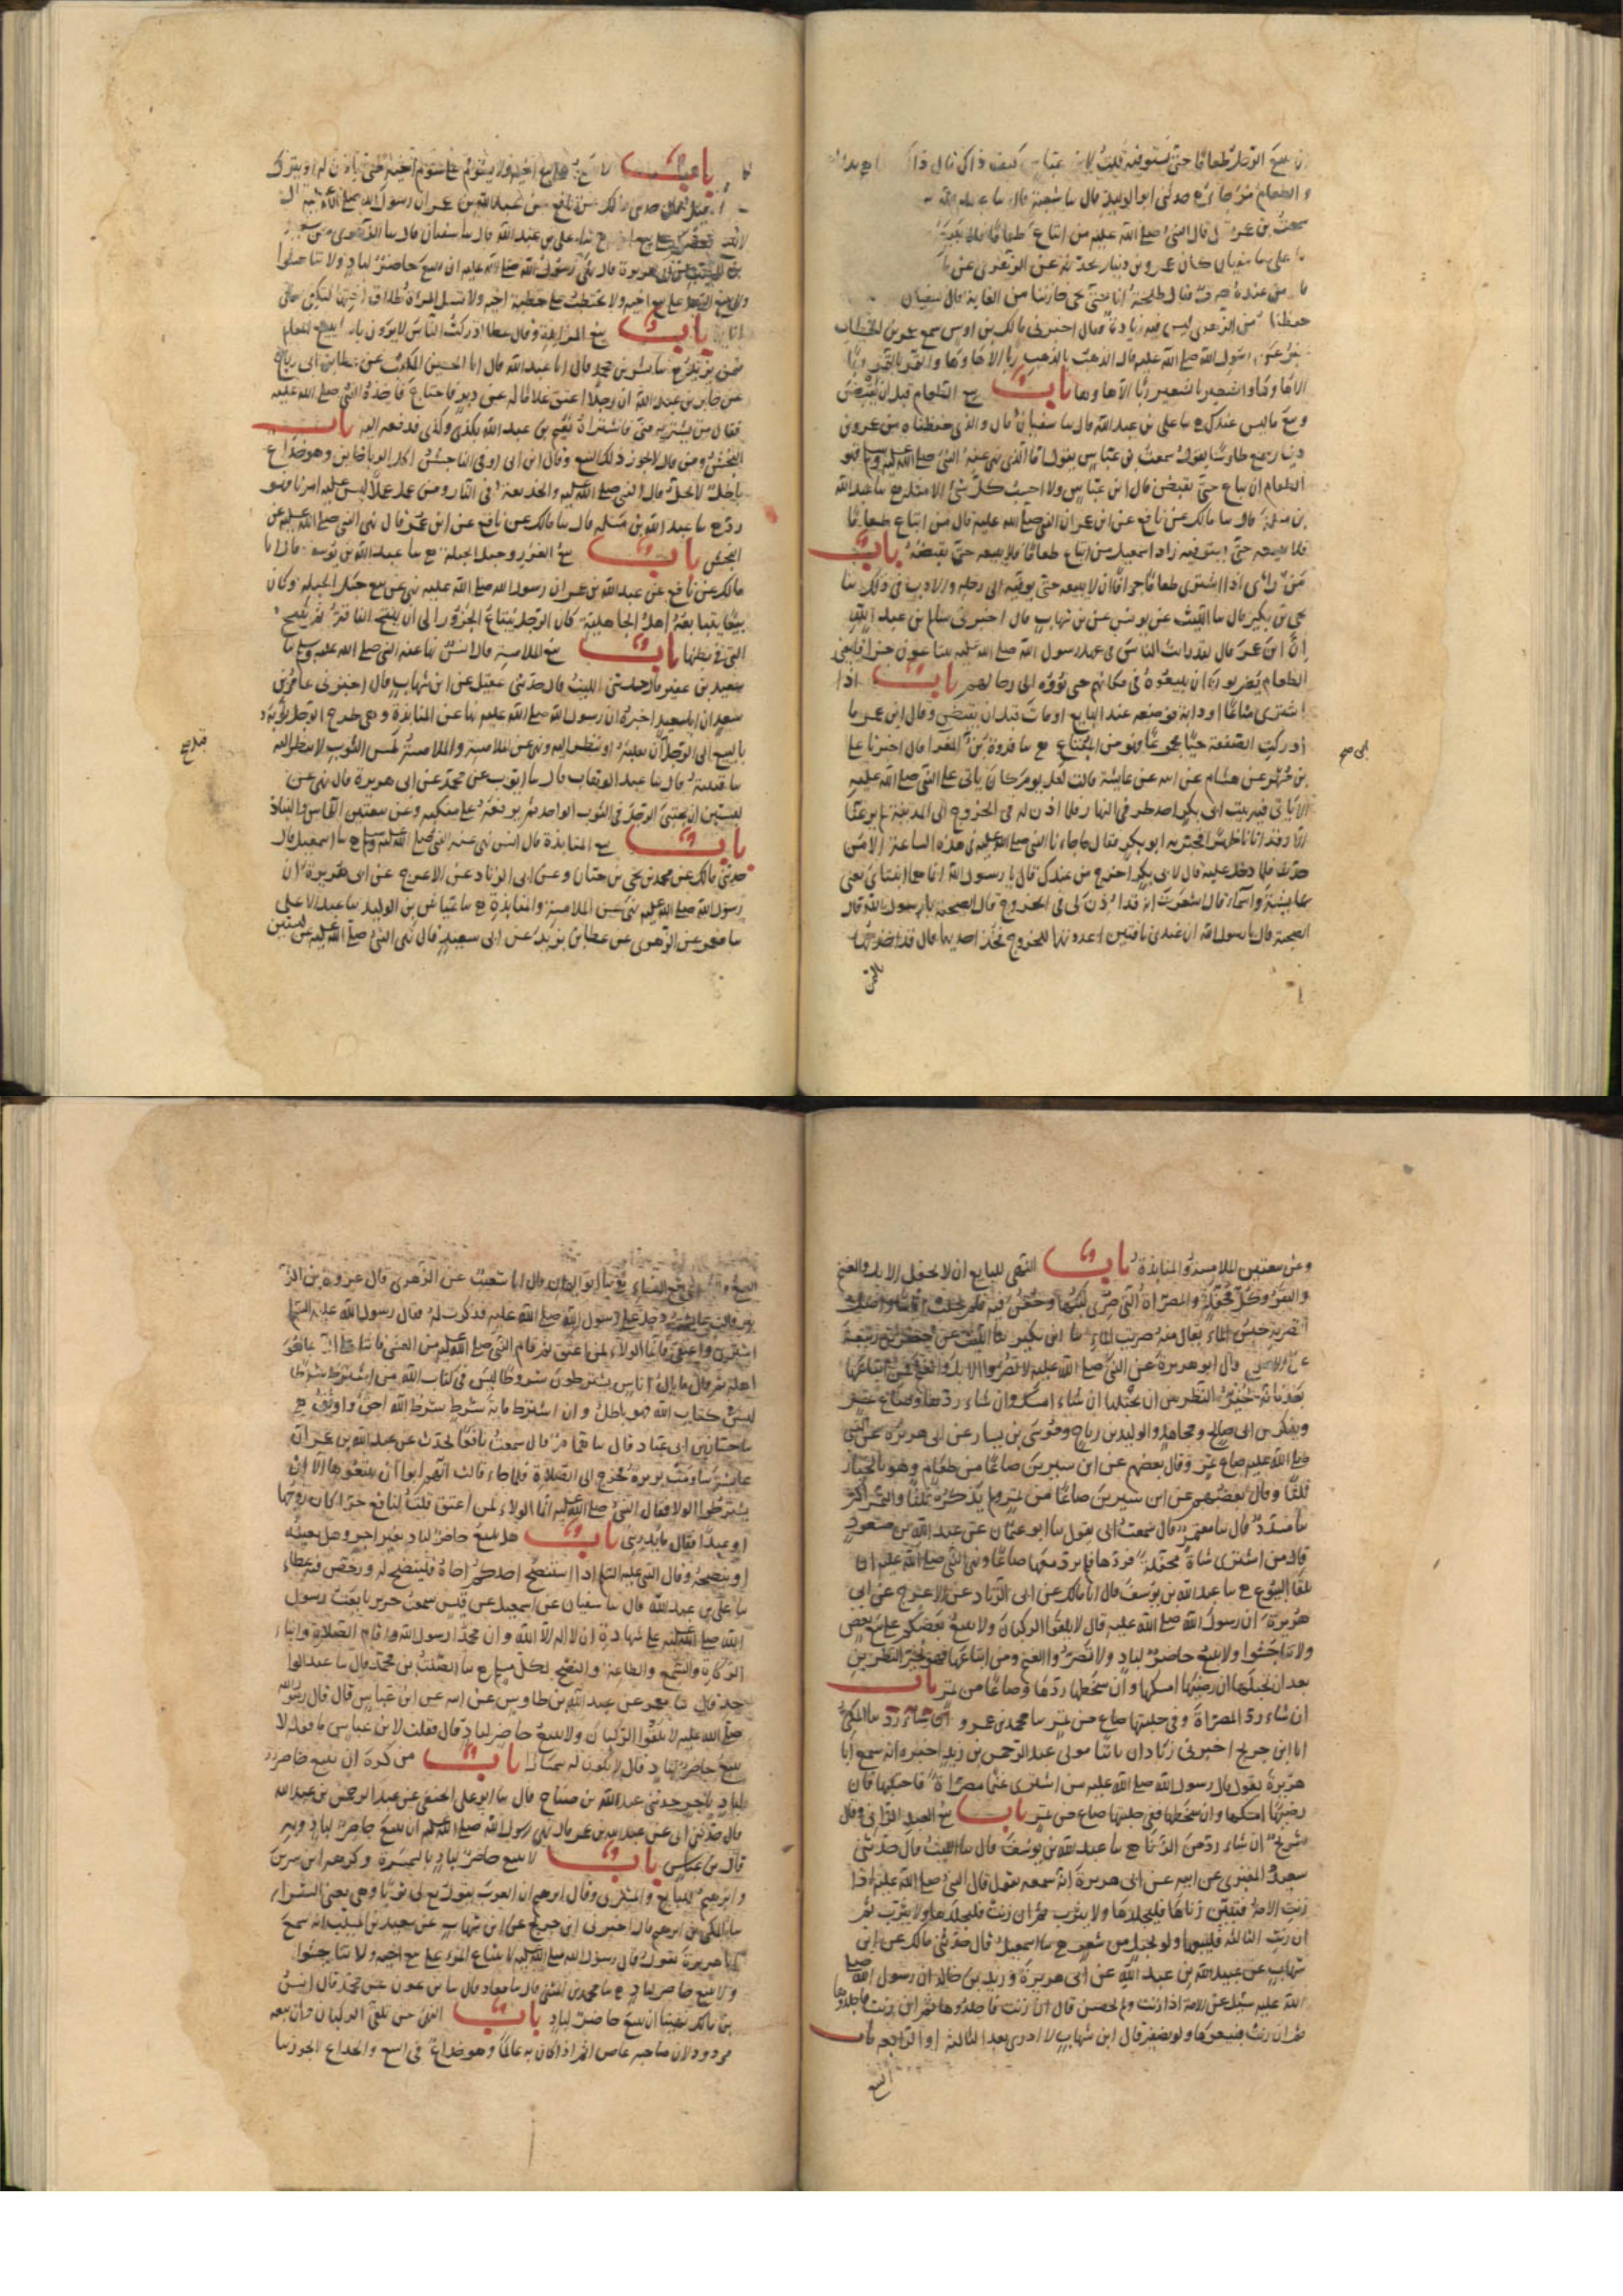 ان يبيع الرجل طعاما حتى يستوفيه قلت لابن عباس كيف ذاك قال ذاك
والطعام مرجا
سمعت بن عمر قال النبي صلى الله عليه من ابتاع طعاما فلا يبيعه
عنده صرف فقال طلحة انا حتى يجي خازننا من الغابة قال سفيان
حفظناه من الزهري ليس فيه زيادة فقال اخبرني مالك بن اوس سمع عمر بن الخطاب
يخبر عن رسول الله صلى الله عليه قال الذهب بالذهب ربا الا ها وها
الا ها وها والشعير بالشعير ربا الا ها وها باب بيع الطعام قبل ان يقبض
وبيع ما ليس عندك ح سا على بن عبد الله قال سا سفيان قال الذي حفظناه من عمرو بن
دينار سمع طاوسا يقول سمعت بن عباس يقول اما الذي نهى عنه النبي صلى الله عليه وسلم فهو
الطعام ان يباع حتى يقبض قال ابن عباس ولا احسب كل شئ الا مثله ح سا عبد الله
بن مسلمة قال سا مالك عن نافع عن ابن عمر ان النبي صلى الله عليه قال من ابتاع طعاما
فلا يبيعه حتى يستوفيه زاد اسمعيل من ابتاع طعاما فلا يبيعه حتى يقبضه باب
من راى اذا اشترى طعاما جزافا ان لا يبيعه حتى يوفيه الى رحله والادب في ذلك سا
يحيى بن بكير قال سا الليث عن يونس عن بن شهاب قال اخبرني سالم بن عبد الله
ان ابن عمر قال لقد رايت الناس في عهد رسول الله صلى الله عليه يبتاعون جزافا يعني
الطعام يضربون ان يبيعوه في مكانهم حتى يؤوه الى رحالهم باب اذا
اشترى متاعا او دابة فوضعه عند البايع او مات قبل ان يقبض وقال ابن عمر ما
ادركت الصفقة حيا مجموعا فهو من المبتاع ح سا فروة بن ابي المغرا قال اخبرنا على
بن مسهر عن هشام عن ابيه عن عايشة قالت لقل يوم كان ياتي على النبي صلى الله عليه
الا ياتي فيه بيت ابي بكر احد طرفي النهار فلما اذن له في الخروج الى المدينة لم يرعنا
الا وقد اتانا ظهرا فخبر به ابو بكر فقال ما جاءنا النبي صلى الله عليه في هذه الساعة الا من
حدث فلما دخل عليه قال لابي بكر اخرج من عندك قال يا رسول الله انما هما ابنتاي يعني
عايشة واسماء قال اشعرت انه قد اذن لي في الخروج قال الصحبة يا رسول الله قال
الصحبة قال يا رسول الله ان عندي ناقتين اعددتهما للخروج فخذ احديهما قال قد اخذتها
بالثمن
باب لا يبيع على بيع اخيه ولا يسوم على سوم اخيه حتى ياذن له او يترك
مالك عن نافع عن عبد الله بن عمر ان رسول الله صلى الله عليه قال
لا يبيع بعضكم على بيع اخيه سا على بن عبد الله قال سا سفيان قال سا الزهري عن سعيد
بن المسيب عن ابي هريرة قال نهى رسول الله صلى الله عليه ان يبيع حاضر لباد ولا تناجشوا
ولا يبيع الرجل على بيع اخيه ولا يخطب على خطبة اخيه ولا تسئل المراة طلاق اختها لتكفئ ما في
انائها باب بيع المزايدة وقال عطا ادركت الناس لا يرون باسا ببيع المغانم
فمن يزيد ح سا بشر بن محمد قال انا عبد الله قال انا الحسين المكتب عن عطا بن ابي رباح
عن جابر بن عبد الله ان رجلا اعتق غلاما له عن دبر فاحتاج فاخذه النبي صلى الله عليه
فقال من يشتريه مني فاشتراه نعيم بن عبد الله بكذى وكذى فدفعه اليه باب
النجش ومن قال لا يجوز ذلك البيع وقال ابن ابي اوفى الناجش اكل الربا خاين وهو خداع
باطل لا يحل قال النبي صلى الله عليه والخديعة في النار ومن عمل عملا ليس عليه امرنا فهو
رد ح سا عبد الله بن مسلمة قال سا مالك عن نافع عن ابن عمر قال نهى النبي صلى الله عليه عن
النجش باب بيع الغرر وحبل الحبلة ح سا عبد الله بن يوسف قال انا
مالك عن نافع عن عبد الله بن عمر ان رسول الله صلى الله عليه نهى عن بيع حبل الحبلة وكان
بيعا يتبايعه اهل الجاهلية كان الرجل يبتاع الجزور الى ان تنتج الناقة ثم تنتج
التي في بطنها باب بيع الملامسة قال انس نها عنه النبي صلى الله عليه وسلم سا
سعيد بن عفير قال حدثني الليث قال حدثني عقيل عن ابن شهاب قال اخبرني عامر بن
سعد ان ابا سعيد اخبره ان رسول الله صلى الله عليه نها عن المنابذة وهي طرح الرجل ثوبه
بالبيع الى الرجل قبل ان يقلبه او ينظر اليه ونهى عن الملامسة والملامسة لمس الثوب لا ينظر اليه
سا قتيبة قال سا عبد الوهاب قال سا ايوب عن محمد عن ابي هريرة قال نهى عن
لبستين ان يحتبي الرجل في الثوب الواحد ثم يرفعه على منكبه وعن بيعتين اللماس والنباذ
باب بيع المنابذة قال انس نهى عنه النبي صلى الله عليه وسلم ح سا اسمعيل قال
حدثني مالك عن محمد بن يحيى بن حبان وعن ابي الزناد عن الاعرج عن ابي هريرة ان
رسول الله صلى الله عليه نهى عن الملامسة والمنابذة ح سا عياش بن الوليد سا عبد الاعلى
سا معمر عن الزهري عن عطا بن يزيد عن ابي سعيد قال نهى النبي صلى الله عليه عن لبستين
وعن بيعتين الملامسة والمنابذة باب النهي للبايع ان لا يحفل الابل والغنم
والبقر وكل محفلة والمصراة التي صري لبنها وحقن فيه
التصرية حبس الماء يقال منه صريت الماء سا ابن بكير سا الليث عن جعفر بن ربيعة
عن الاعرج قال ابو هريرة عن النبي صلى الله عليه لا تصروا الابل والغنم فمن ابتاعها
بعد فانه بخير النظرين ان يحتلبها ان شاء امسك وان شاء ردها وصاع تمر
ويذكر عن ابي صالح ومجاهد والوليد بن رباح وموسى بن يسار عن ابي هريرة عن النبي
صلى الله عليه صاع تمر وقال بعضهم عن ابن سيرين صاعا من طعام وهو بالخيار
ثلثا وقال بعضهم عن ابن سيرين صاعا من تمر ولم يذكر ثلثا والتمر اكثر
سا مسدد قال سا معتمر قال سمعت ابي يقول سا ابو عثمان عن عبد الله بن مسعود
قال من اشترى شاة محفلة فردها فليرد معها صاعا ونهى النبي صلى الله عليه ان
تلقا البيوع ح سا عبد الله بن يوسف قال انا مالك عن ابي الزناد عن الاعرج عن ابي
هريرة ان رسول الله صلى الله عليه قال لا تلقوا الركبان ولا يبيع بعضكم على بيع بعض
ولا تناجشوا ولا يبيع حاضر لباد ولا تصروا الغنم ومن ابتاعها فهو بخير النظرين
بعد ان يحتلبها ان رضيها امسكها وان سخطها ردها وصاعا من تمر باب
ان شاء رد المصراة وفي حلبتها صاع من تمر سا محمد بن عمرو سا المكي
انا ابن جريج اخبرني زياد ان ثابتا مولى عبد الرحمن بن زيد اخبره انه سمع ابا
هريرة يقول قال رسول الله صلى الله عليه من اشترى غنما مصراة فاحتلبها فان
رضيها امسكها وان سخطها ففي حلبتها صاع من تمر باب بيع العبد الزاني وقال
شريح ان شاء رد من الزنا ح سا عبد الله بن يوسف قال سا الليث قال حدثني
سعيد المقبري عن ابيه عن ابي هريرة انه سمعه يقول قال النبي صلى الله عليه اذا
زنت الامة فتبين زناها فليجلدها ولا يثرب ثم ان زنت فليجلدها ولا يثرب ثم
ان زنت الثالثة فليبعها ولو بحبل من شعر ح سا اسمعيل قال حدثني مالك عن ابن
شهاب عن عبيد الله بن عبد الله عن ابي هريرة وزيد بن خالد ان رسول الله صلى
الله عليه سئل عن الامة اذا زنت ولم تحصن قال ان زنت فاجلدوها ثم ان زنت فاجلدوها
ثم ان زنت فبيعوها ولو بضفير قال ابن شهاب لا ادري بعد الثالثة او الرابعة باب
البيع
سا ابو اليمان قال انا شعيب عن الزهري قال عروة بن الزبير
دخل على رسول الله صلى الله عليه فذكرت له فقال رسول الله عليه السلم
اشتري واعتقي فانما الولاء لمن اعتق ثم قام النبي صلى الله عليه من العشي فاثنا على الله بما هو
اهله ثم قال ما بال اناس يشترطون شروطا ليس في كتاب الله من اشترط شرطا
ليس في كتاب الله فهو باطل وان اشترط ماية شرط شرط الله احق واوثق ح
سا حسان بن ابي عباد قال سا همام قال سمعت نافعا يحدث عن عبد الله بن عمر ان
عايشة ساومت بريرة فخرج الى الصلاة فلما جاء قالت انهم ابوا ان يبيعوها الا ان
يشترطوا الولا فقال النبي صلى الله عليه انما الولاء لمن اعتق قلت لنافع حرا كان زوجها
او عبدا فقال ما يدريني باب هل يبيع حاضر لباد بغير اجر وهل يعينه
او ينصحه وقال النبي عليه السلم اذا استنصح احدكم اخاه فلينصح له ورخص فيه عطاء
سا على بن عبد الله قال سا سفيان عن اسمعيل عن قيس سمعت جريرا بايعت رسول
الله صلى الله عليه على شهادة ان لا اله الا الله وان محمدا رسول الله واقام الصلاة وايتاء
الزكاة والسمع والطاعة والنصح لكل مسلم ح سا الصلت بن محمد قال سا عبد الواحد
قال سا معمر عن عبد الله بن طاوس عن ابيه عن ابن عباس قال قال رسول الله
صلى الله عليه لا تلقوا الركبان ولا يبيع حاضر لباد قال فقلت لابن عباس ما قوله لا
يبيع حاضر لباد قال لا يكون له سمسارا باب من كره ان يبيع حاضر
لباد باجر حدثني عبد الله بن صباح قال سا ابو على الحنفي عن عبد الرحمن بن عبد الله
قال حدثني ابي عن عبد الله بن عمر قال نهى رسول الله صلى الله عليه ان يبيع حاضر لباد وبه
قال بن عباس باب لا يبيع حاضر لباد بالسمسرة وكرهه ابن سيرين
وابرهيم للبايع والمشتري وقال ابرهيم ان العرب يقول بع لي ثوبا وهي يعني الشراء
سا المكي بن ابرهيم قال اخبرني ابن جريج عن ابن شهاب عن سعيد بن المسيب انه سمع
ابا هريرة يقول قال رسول الله صلى الله عليه لا يبتاع المرء على بيع اخيه ولا تناجشوا
ولا يبيع حاضر لباد ح سا محمد بن المثنى قال سا معاذ قال سا بن عون عن محمد قال انس
بن مالك نهينا ان يبيع حاضر لباد باب النهي عن تلقي الركبان وان بيعه
مردود لان صاحبه عاص اثم اذا كان به عالما وهو خداع في البيع والخداع لا يجوز سا